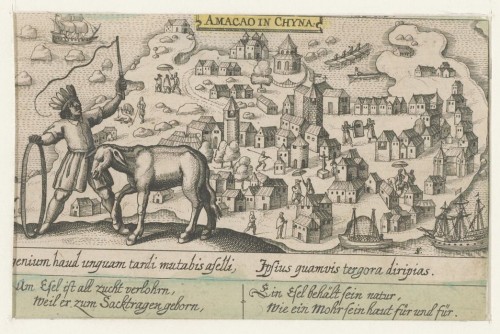 AMACAO IN CHYNA.
genium haud unquam tardi mutabis aſelli, Ipſius quamvis tergora diripias.
Am Eſel iſt all zucht verlohrn,
Weil er zum Sacktragen geborn,
Ein Eſel behält ſein natur,
Wie ein Mohr ſein haut für und für.